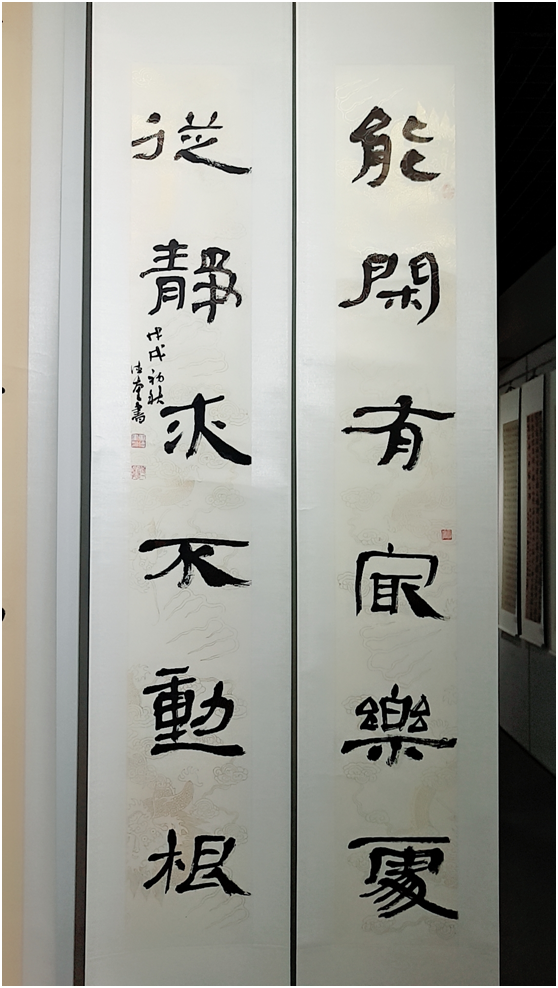 能閑有㝡樂處
從靜求不動根
戊戌初秋
書